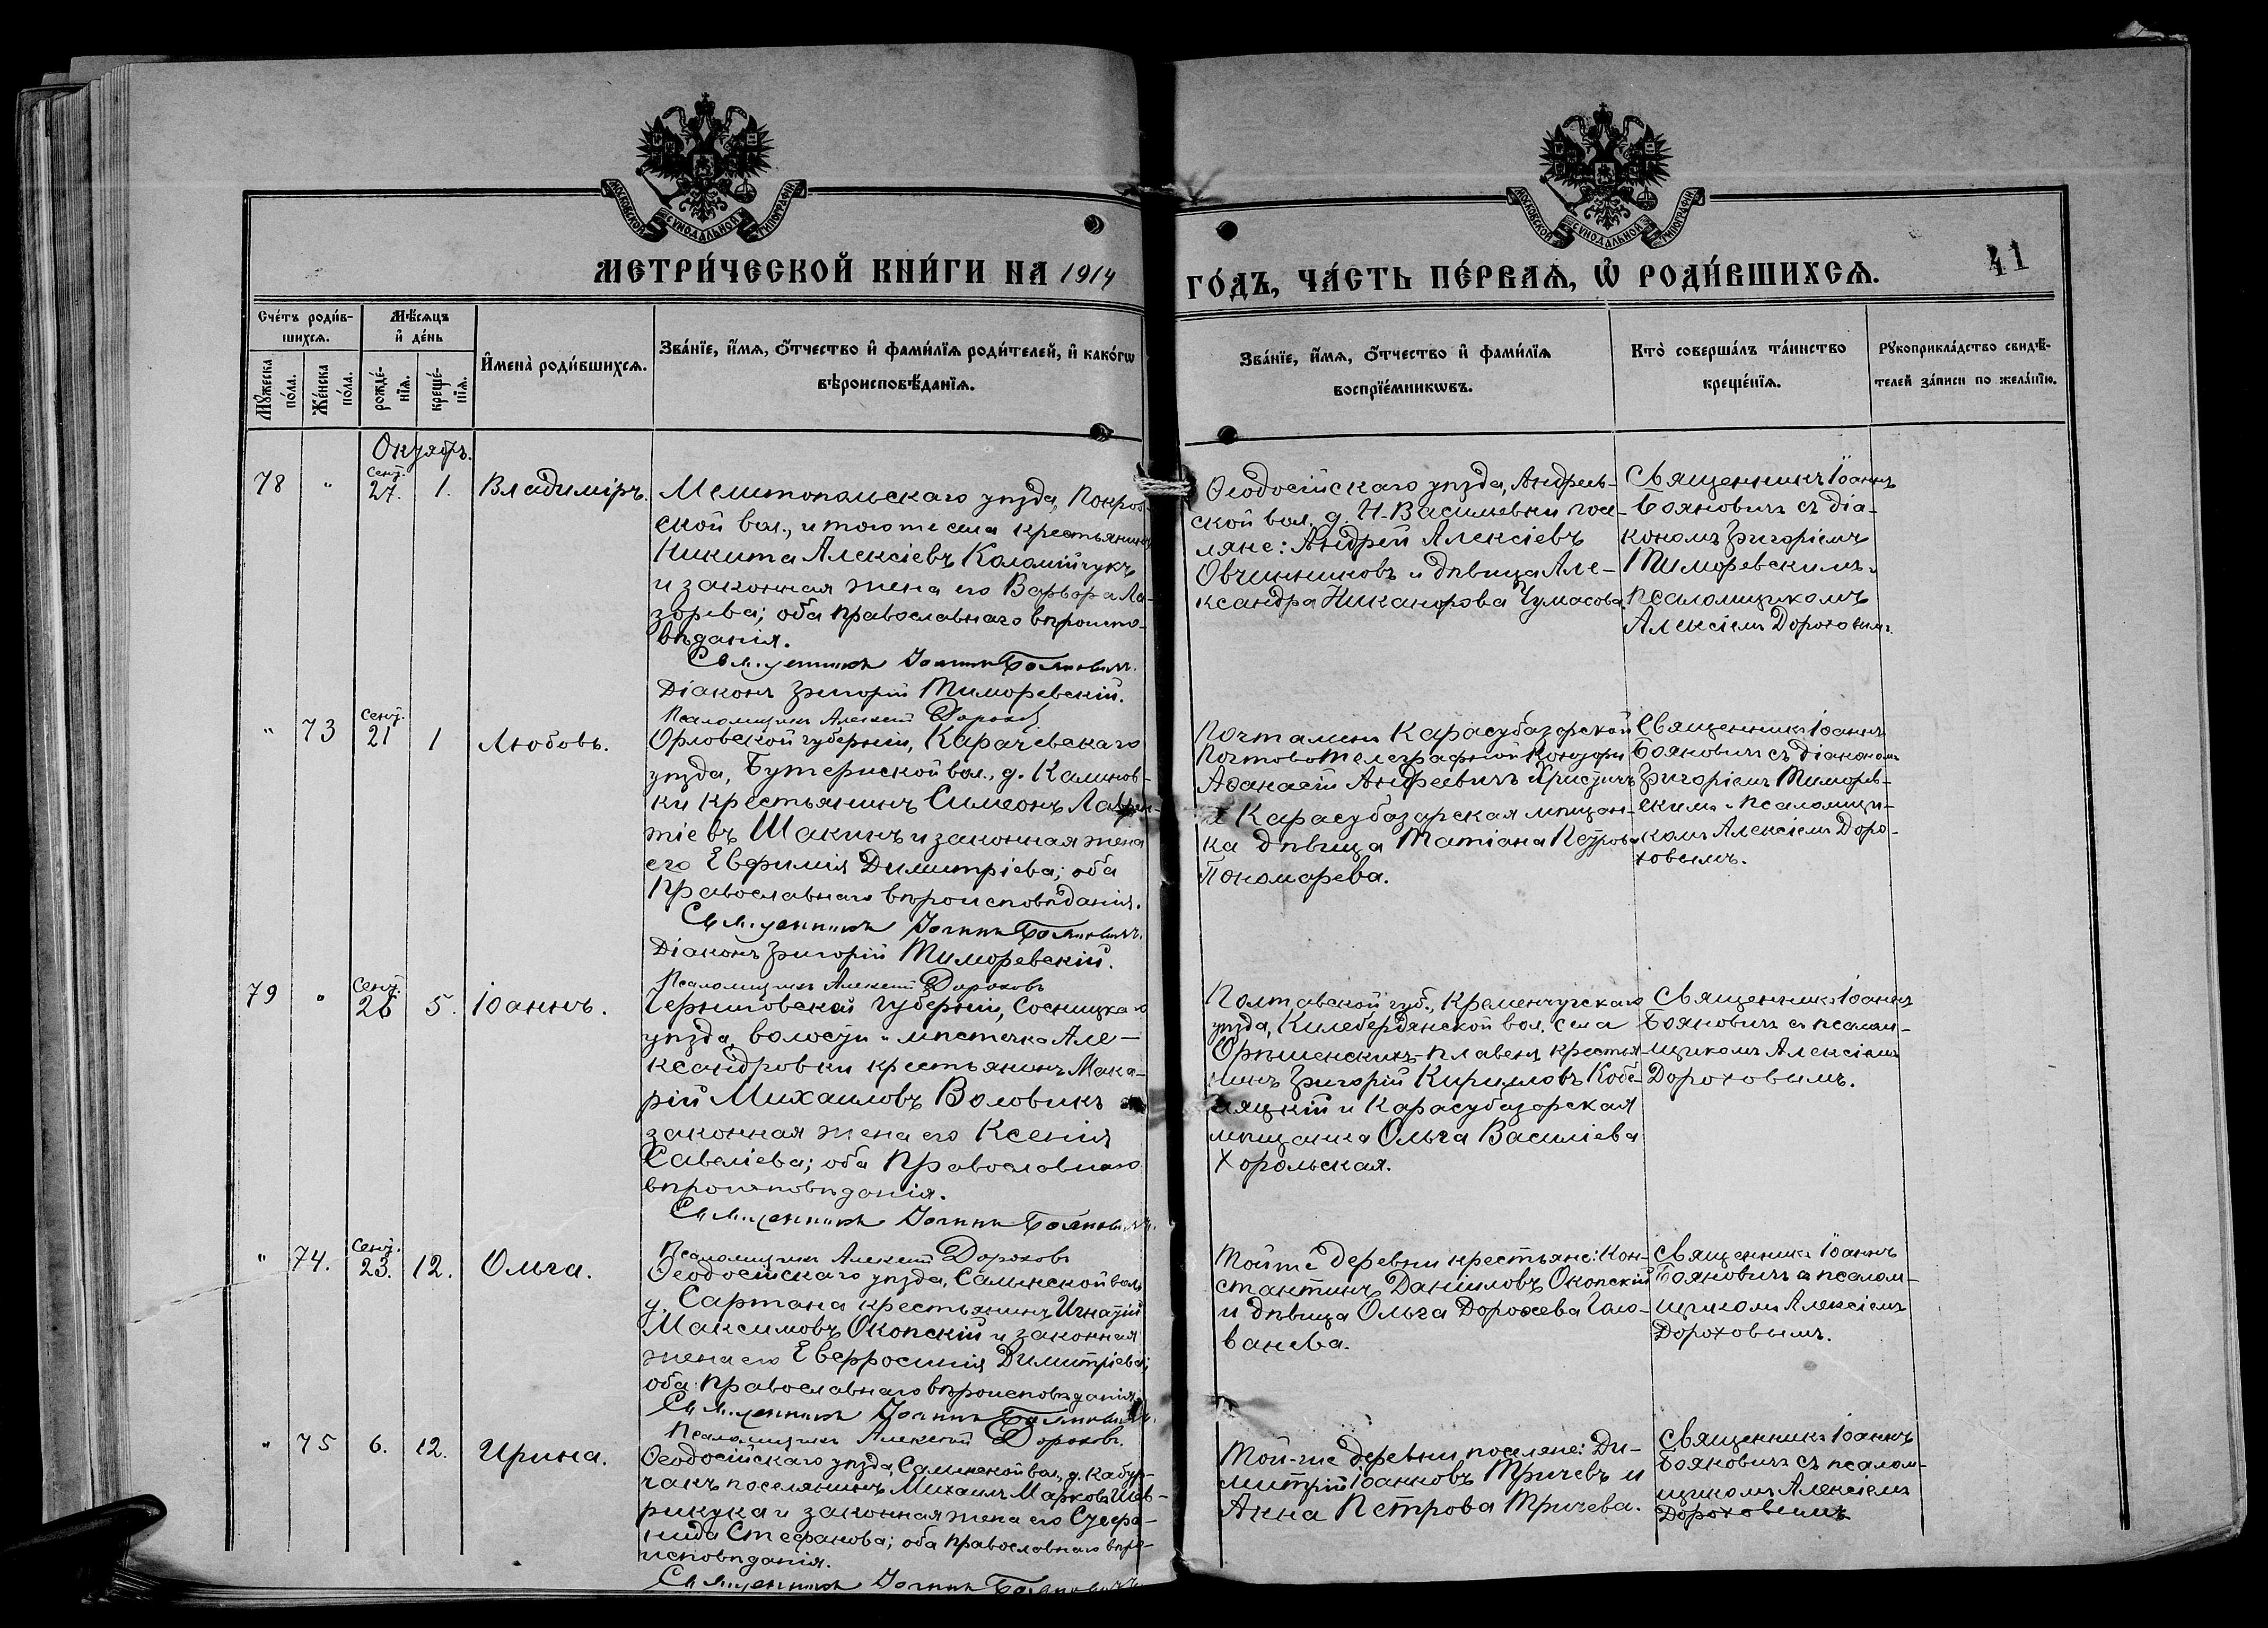 МОСКОВСКОЙ СѴНОДАЛЬНОЙ ТИПОГРАФІИ
МОСКОВСКОЙ СѴНОДАЛЬНОЙ ТИПОГРАФІИ
МЕТРИ́ЧЕСКОЙ КНИ́ГИ НА 1914
ГО́ДЪ, ЧА́СТЬ ПЕ́РВАѦ, Ѡ҆ РОДИ́ВШИХСѦ.
41
Сче́тъ роди́в-
шихсѧ.
Мꙋ́жеска по́ла.
Же́нска по́ла.
Мѣ́сѧцъ
и҆ де́нь
рожде́-
нїѧ.
креще́-
нїѧ.
И҆мена̀ роди́вшихсѧ.
Зва́нїе, и҆́мѧ, ѻ҆́тчество и҆ фами́лїѧ роди́телей, и҆ како́гѡ
вѣроисповѣ́данїѧ.
Зва́нїе, и҆́мѧ, ѻ҆́тчество и҆ фами́лїѧ
воспрїе́мникѡвъ.
Кто̀ соверша́лъ та́инство
креще́нїѧ.
Рꙋкоприкла́дство свидѣ́-
телей за́писи по жела́нїю.
Октябрь.
78 " Сент. 27. 1. Владиміръ.
Мелитопольскаго уѣзда, Покров-
ской вол., и того же села крестьянинъ
Никита Алексіевъ Коломійчукъ
и законная жена его Варвара Ла-
зорева; оба православнаго вѣроиспо-
вѣданія.
Священникъ Іоаннъ Бояновичъ.
Діаконъ Григорій Тиморевскій.
Псаломщикъ Алексій Дороховъ
Ѳеодосійскаго уѣзда, Андреев-
ской вол. д. Н-Васильевки посе-
ляне: Андрей Алексіевъ
Овчинниковъ и дѣвица Але-
ксандра Никанорова Чумасова
Священникъ Іоаннъ
Бояновичъ съ діа-
кономъ Григоріемъ
Тиморевскимъ и
псаломщикомъ
Алексіемъ Дороховымъ.
" 73 Сент. 21 1 Любовь.
Орловской губерніи, Карачевскаго
уѣзда, вол., д. Калинов-
ки крестьянинъ Симеонъ Лаврен-
тіевъ Шакинъ и законная жена
его Евфимія Димитріева; оба
православнаго вѣроисповѣданія.
Священникъ Іоаннъ Бояновичъ.
Діаконъ Григорій Тиморевскій.
Псаломщикъ Алексій Дороховъ
Карасубазарской
Почтово-телеграфной конторы
Аѳанасій Андреевичъ
и Карасубазарская мѣщан-
ка дѣвица Татіана Петрова
Пономарева.
Священникъ Іоаннъ
Бояновичъ съ діакономъ
Григоріемъ Тиморев-
скимъ и псаломщи-
комъ Алексіемъ Доро-
ховымъ.
79 " Сент. 26 5. Іоаннъ.
Черниговской губерніи, Сосницкаго
уѣзда, волости и мѣстечка Але-
ксандровки крестьянинъ Мака-
рій Михаиловъ Воловикъ и
законная жена его Ксенія
Савеліева; оба православнаго
вѣроисповѣданія.
Священникъ Іоаннъ Бояновичъ.
Псаломщикъ Алексій Дороховъ
Полтавской губ., Кременчугскаго
уѣзда, Килебердянской вол. села
крестья-
нинъ Григорій Кирилловъ Кобе-
ляцкій и Карасубазарская
мѣщанка Ольга Василіева
Хорольская.
Священникъ Іоаннъ
Бояновичъ съ псалом-
щикомъ Алексіемъ
Дороховымъ.
" 74. Сент. 23. 12. Ольга.
Ѳеодосійскаго уѣзда, Салынской вол.
д. Сартана крестьянинъ Игнатій
Максимовъ Окопскій и законная
жена его Евфросинія Димитріева;
оба православнаго вѣроисповѣданія.
Священникъ Іоаннъ Бояновичъ.
Псаломщикъ Алексій Дороховъ.
Той же деревни крестьяне: Кон-
стантинъ Даніиловъ Окопскій
и дѣвица Ольга Дорофеева Голо-
ванева.
Священникъ Іоаннъ
Бояновичъ съ псалом-
щикомъ Алексіемъ
Дороховымъ.
" 75 6. 12. Ирина.
Ѳеодосійскаго уѣзда, Салынской вол., д. Кабур-
чакъ поселянинъ Михаилъ Марковъ
и законная жена его
Стефанова; оба православнаго вѣро-
исповѣданія.
Священникъ Іоаннъ Бояновичъ
Той-же деревни поселяне: Ди-
митрій Іоанновъ Тричевъ и
Анна Петрова Тричева.
Священникъ Іоаннъ
Бояновичъ съ псалом-
щикомъ Алексіемъ
Дороховымъ